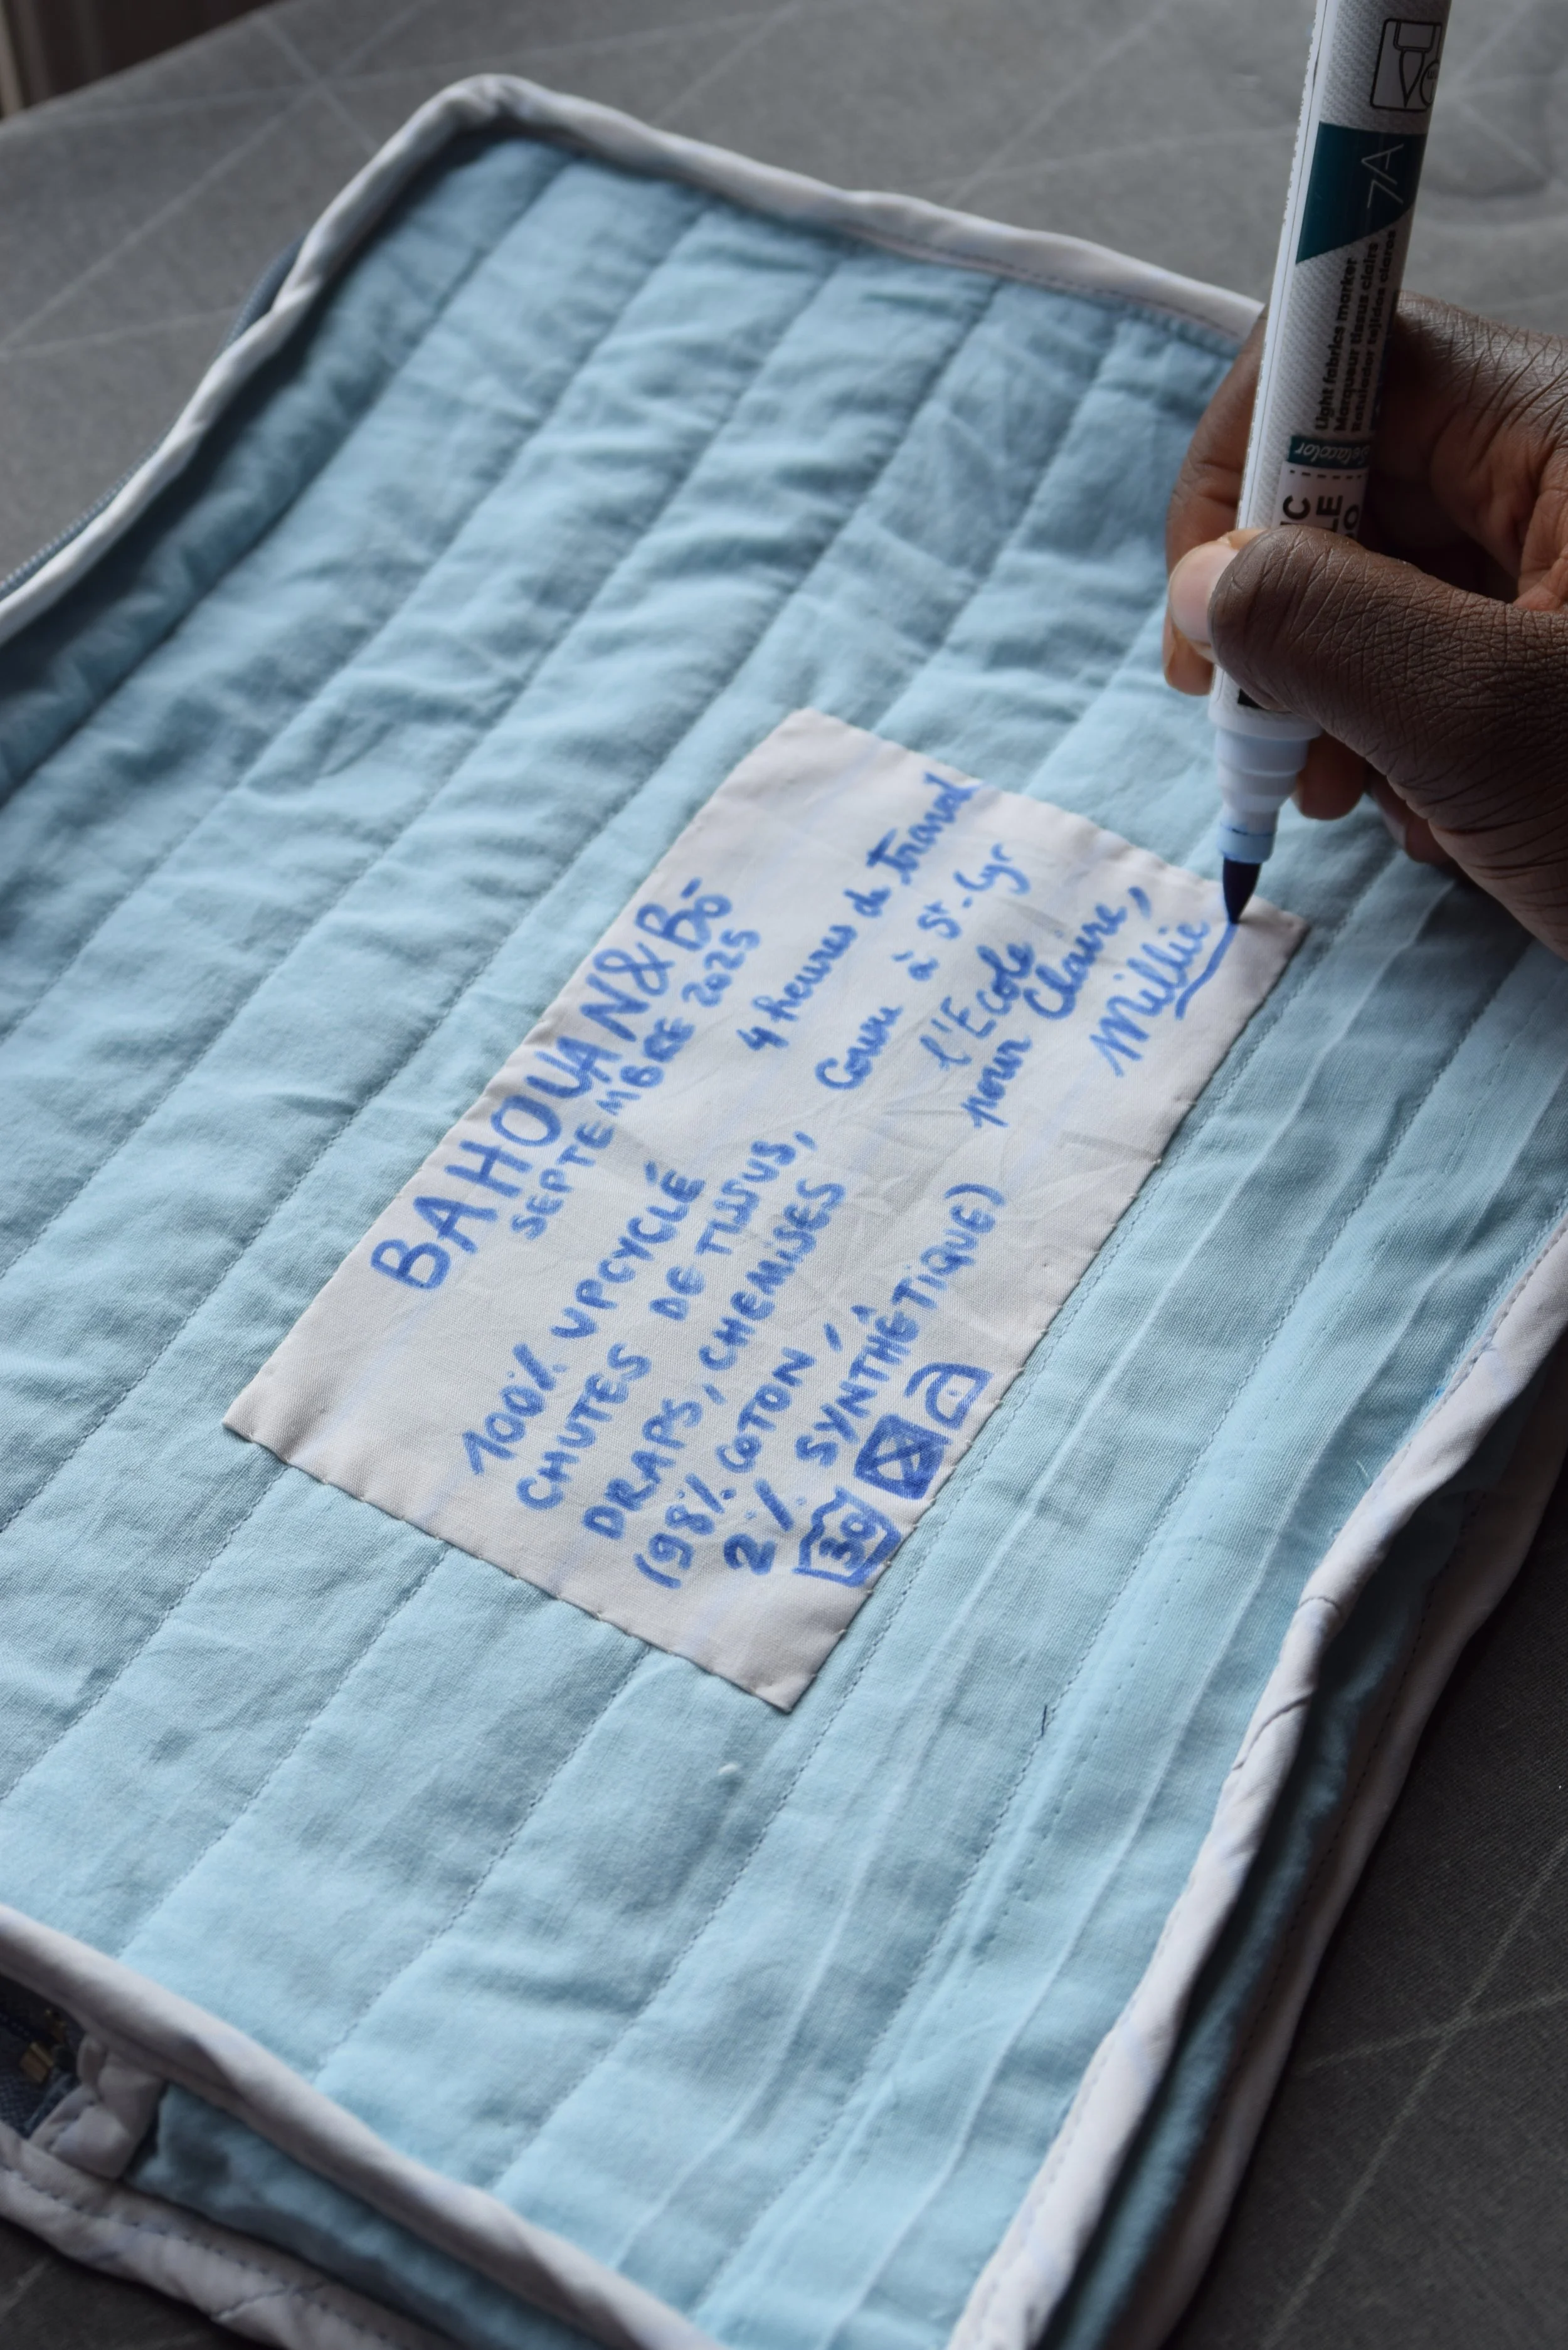 BAHOUAN&BŌ
SEPTEMBRE 2025
100% UPCYCLÉ
CHUTES DE TISSUS,
DRAPS, CHEMISES
(98% COTON,
2% SYNTHÉTIQUE)
30
4 heures de travail
Cousu à St-Cyr
l'Ecole
pour Claire,
Millie
7A
Light fabrics marker
Marqueur tissus clairs
Rotulador tejidos claros
Setacolor